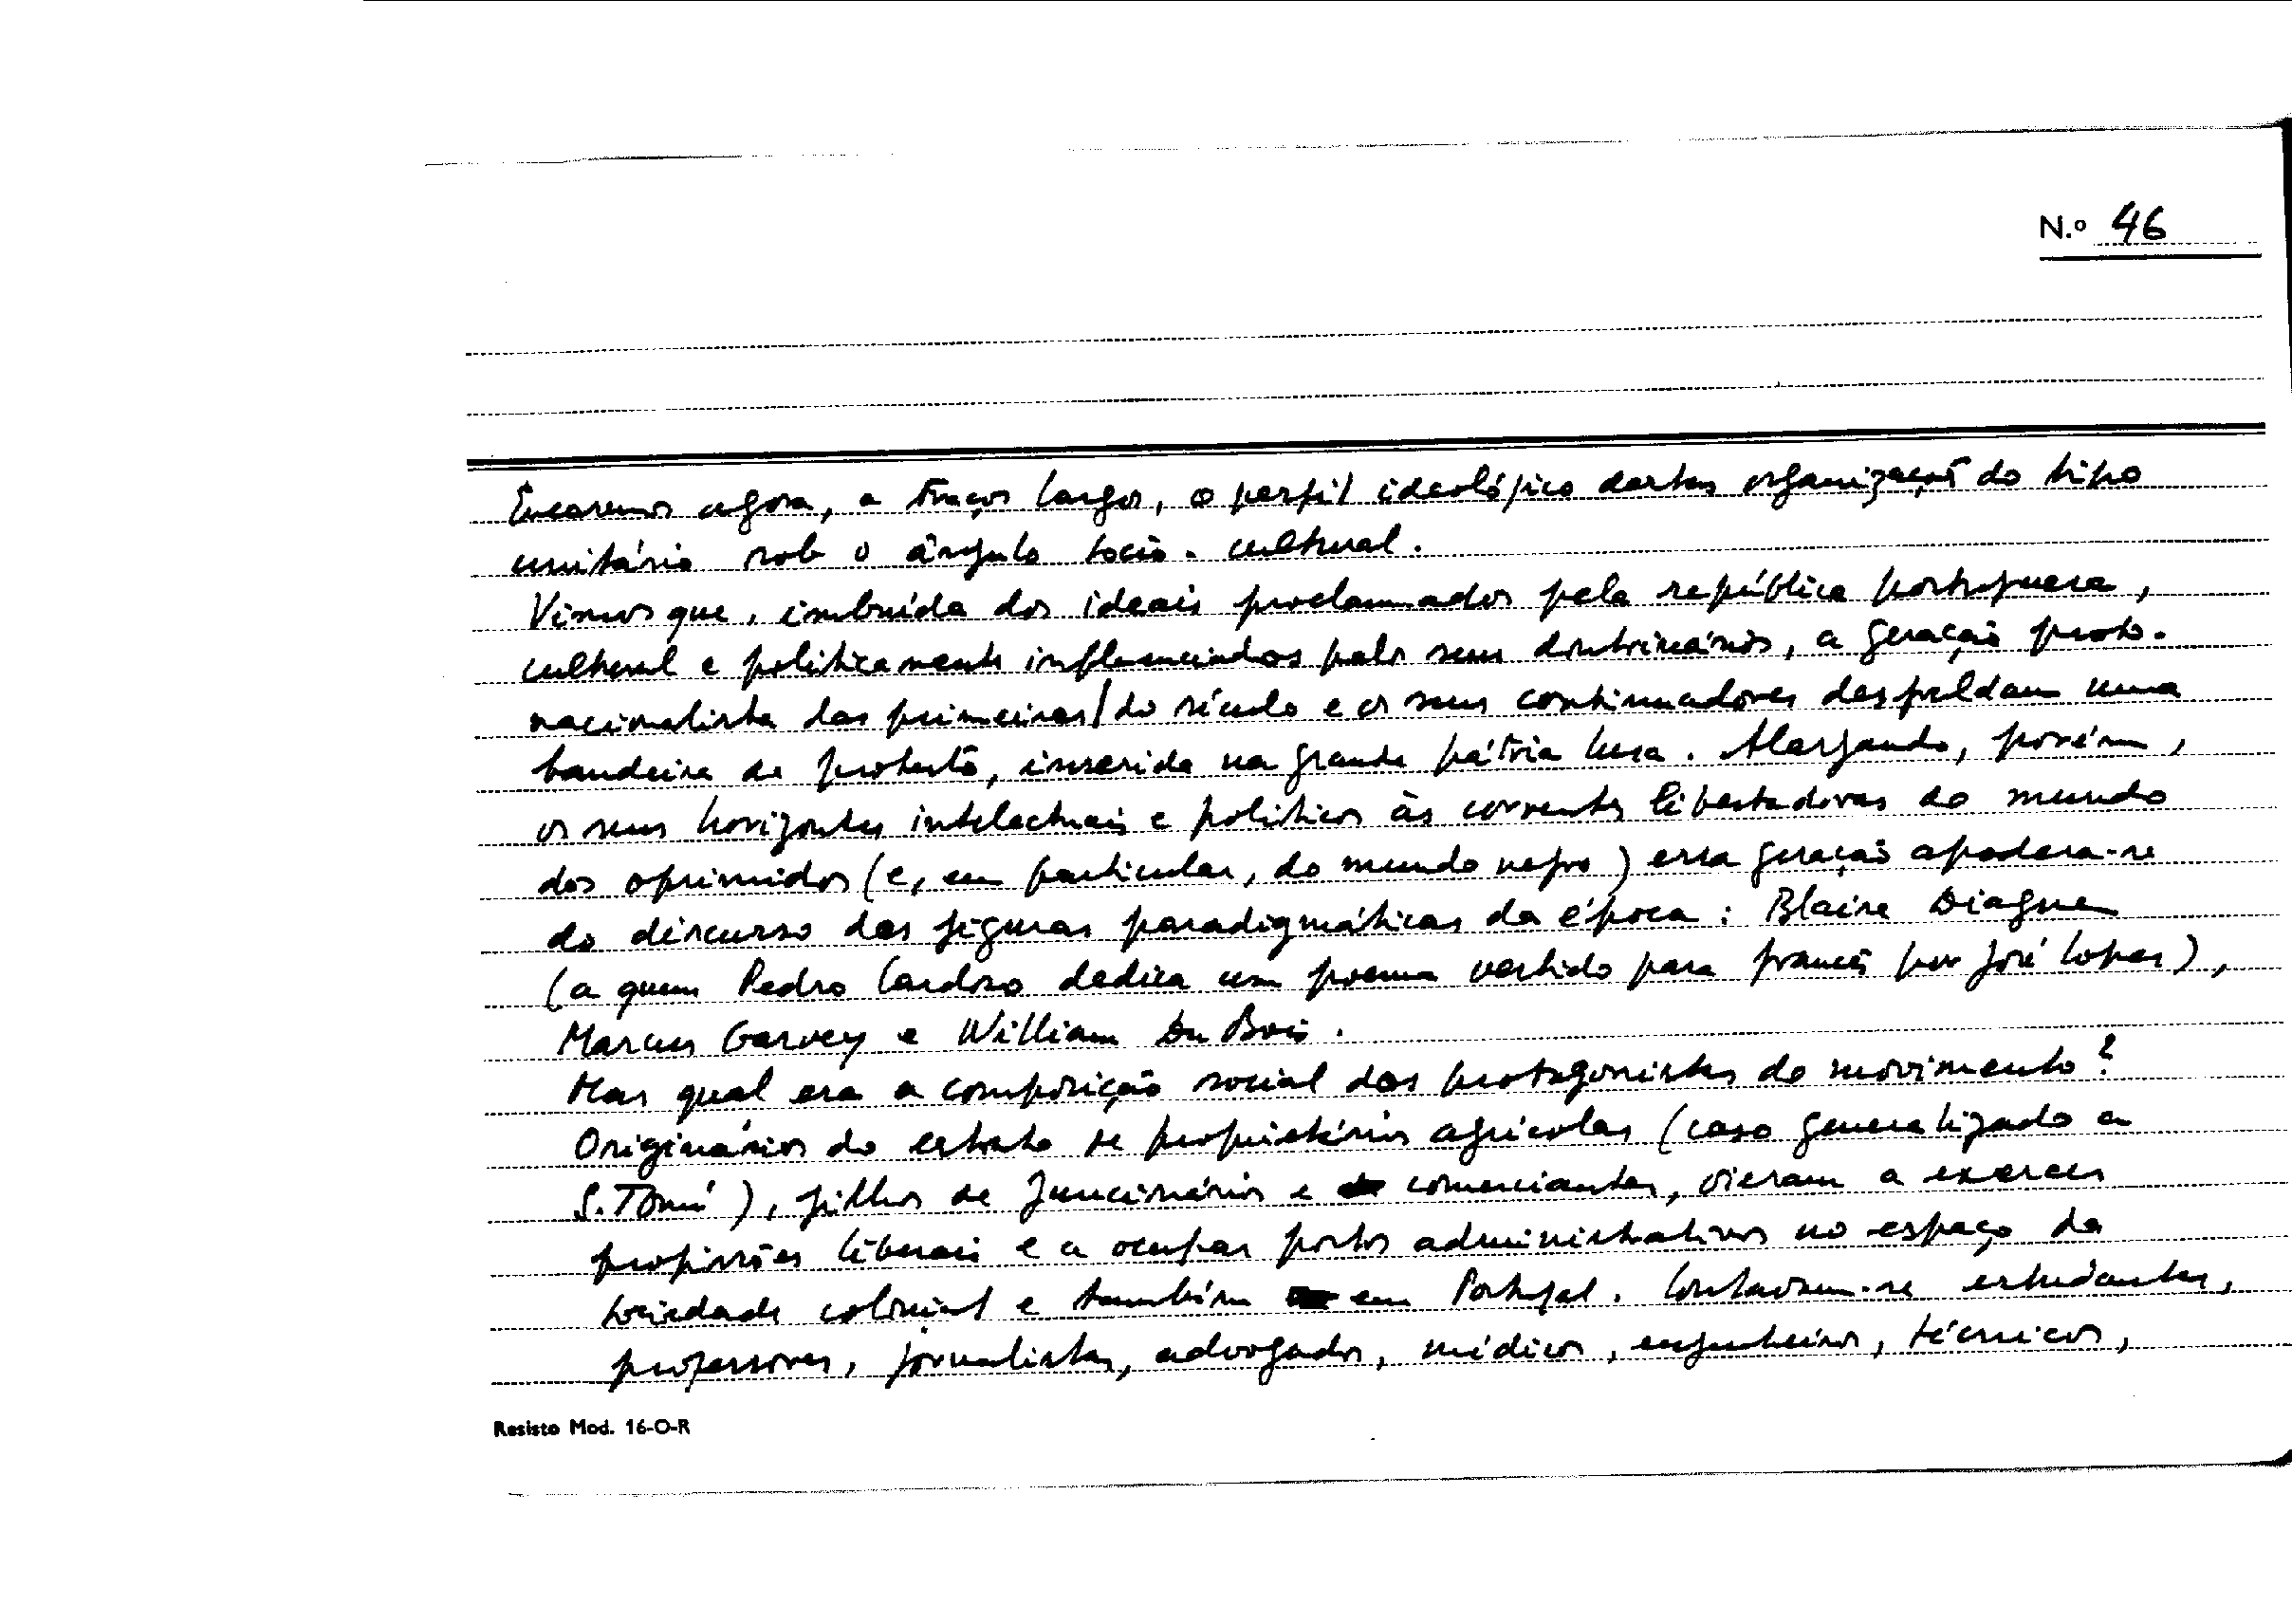 N.º 46
Encaremos agora, a traços largos, o perfil ideológico destas organizações do tipo
unitário sob o ângulo socio-cultural.
Vimos que, imbuída dos ideais proclamados pela república portuguesa,
cultural e politicamente influenciados pelos seus doutrinários, a geração proto-
nacionalista das primeiras/do século e os seus continuadores desfraldam uma
bandeira de protesto, inserida na grande pátria lusa. Alargando, porém,
os seus horizontes intelectuais e políticos às correntes libertadoras do mundo
dos oprimidos (e, em particular, do mundo negro) essa geração apodera-se
do discurso das figuras paradigmáticas da época: Blaise Diagne
(a quem Pedro Cardoso dedica um poema vertido para francês por José Lopes),
Marcus Garvey e William Du Bois.
Mas qual era a composição social dos protagonistas do movimento?
Originários do estrato de proprietários agrícolas (caso generalizado em
S. Tomé), filhos de funcionários e comerciantes, vieram a exercer
profissões liberais e a ocupar postos administrativos no espaço da
sociedade colonial e também em Portugal. Contavam-se estudantes,
professores, jornalistas, advogados, médicos, engenheiros, técnicos,
Resisto Mod. 16-O-R